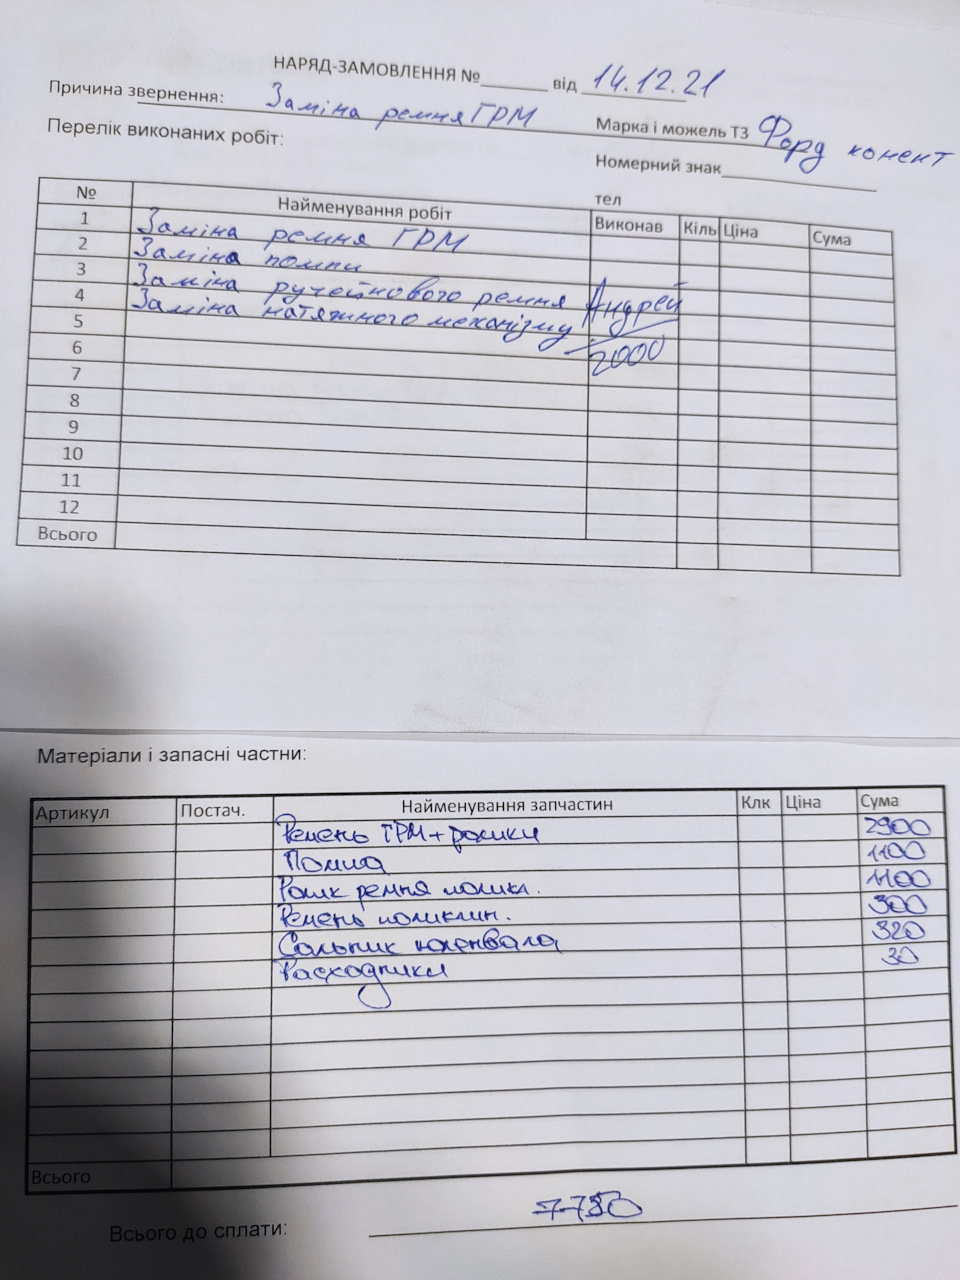 НАРЯД-ЗАМОВЛЕННЯ №______ від 14.12.21
Причина звернення: Заміна ремня ГРМ
Марка і можель ТЗ Форд конект
Перелік виконаних робіт:
Номерний знак
тел
№ Найменування робіт Виконав Кіль Ціна Сума
1 Заміна ремня ГРМ
2 Заміна помпи
3 Заміна ручейкового ремня Андрей
4 Заміна натяжного механізму
5 2000
6
7
8
9
10
11
12
Всього
Матеріали і запасні частни:
Артикул Постач. Найменування запчастин Клк Ціна Сума
Ремень ГРМ+ролики 2900
Помпа 1100
Ролик ремня полики. 1100
Ремень поликлин. 300
Сальник коленвала 320
Расходники 30
Всього
Всього до сплати: 7750